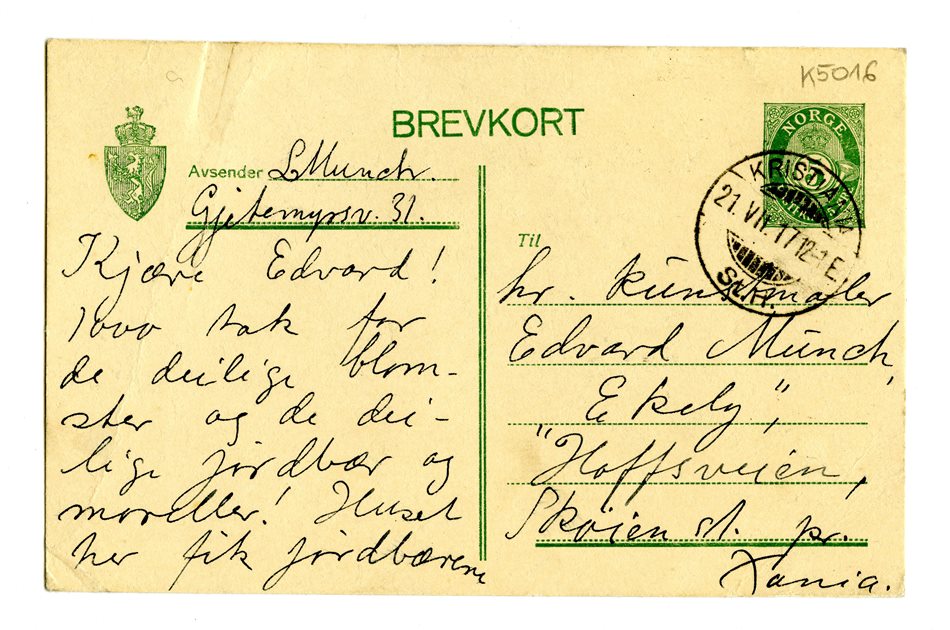 K5016
BREVKORT
NORGE
KRISTIANIA
21.VII.17 12-1 E.
Avsender LMunch.
Gjetemyrsv. 31.
Kjære Edvard!
1000 tak for
de deilige blom-
ster og de dei-
lige jordbær og
moreller! Huset
her fik jordbærene
Til
hr. kunstmaler
Edvard Munch,
"Ekely",
Hoffsveien,
Skøien st. pr.
Xania.